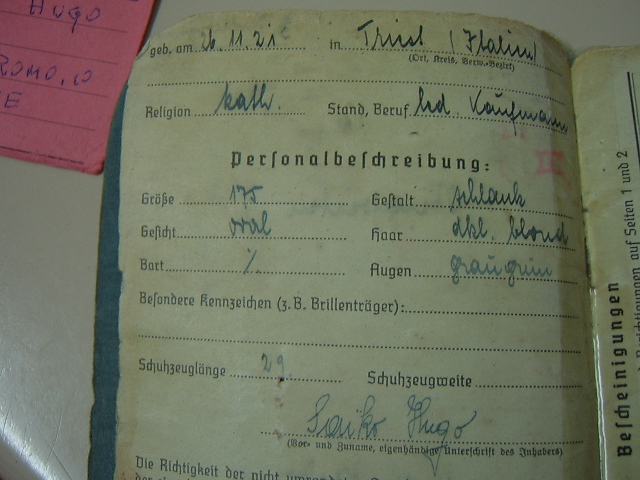 HUGO
geb. am 26.11.21 in Triest (Italien)
(Ort, Kreis, Verw.-Bezirk)
Religion kath. Stand, Beruf led. Kaufmann
Personalbeschreibung:
Größe 175 Gestalt schlank
Gesicht oval Haar dkl. blond
Bart ./. Augen graugrün
Besondere Kennzeichen (z.B. Brillenträger):
Schuhzeuglänge 29 Schuhzeugweite
Hugo
(Vor- und Zuname, eigenhändige Unterschrift des Inhabers)
Die Richtigkeit der nicht
Bescheinigungen
auf Seiten 1 und 2